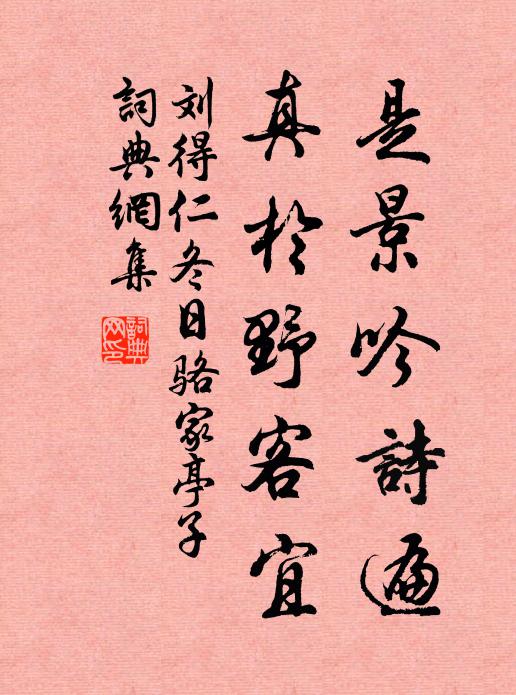 是景吟詩遍
真於野客宜
刘得仁冬日骆家亭子
詞典網集
詞典
网印